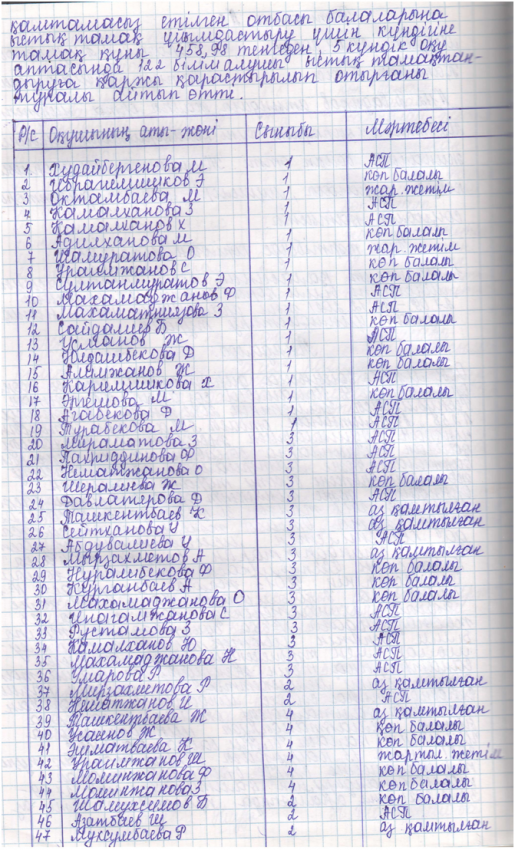 қамтамасыз етілген отбасы балаларына
ыстық тамақ ұйымдастыру үшін күндігіне
тамақ құны 458,98 теңгеден 5 күндік оқу
аптасында 122 білімалушы ыстық тамақтан-
дыруға қаржы қарастырылып отырғаны
туралы айтып өтті.
Р/с Оқушының аты-жөні Сыныбы Мәртебесі
1 Худайбергенова М 1 АСП
2 Ибрагимшиков Э 1 көп балалы
3 Октамбаева М 1 жар. жетім
4 Камалханова З 1 АСП
5 Камалханов Х 1 АСП
6 Адилханова М 1 көп балалы
7 Шамуратова О 1 жар жетім
8 Ураимжанов С 1 көп балалы
9 Султанмуратов Э 1 көп балалы
10 Махамаджанов Ф 1 АСП
11 Махаматниязова З 1 АСП
12 Сайдалиев Б 1 көп балалы
13 Усманов Ж 1 АСП
14 Нидаибекова Ф 1 көп балалы
15 Алимжанов Ж 1 көп балалы
16 Каримшикова Х 1 АСП
17 Эргешова М 1 көп балалы
18 Агабекова Ф 1 АСП
19 Турабекова М 1 АСП
20 Мираматова З 3 АСП
21 Пахриддинова Ф 3 АСП
22 Ниматжанова О 3 АСП
23 Шералиева Ж 3 көп балалы
24 Давлатерова Д 3 АСП
25 Ташкентбаев К 3 аз қамтылған
26 Сейтханова Ч 3 аз қамтылған
27 Абдувалиева Ч 3 АСП
28 Мырзахметов А 3 аз қамтылған
29 Нуралибекова Ф 3 көп балалы
30 Курганбаев А 3 көп балалы
31 Махамаджанова О 3 көп балалы
32 Инагамжанова С 3 АСП
33 Рустамова З 3 АСП
34 Камалханов Ю 3 АСП
35 Махамаджанова Н 3 АСП
36 Умарова Р 3 АСП
37 Мирзахметова Р 2 аз қамтылған
38 Ниматжанов И 2 АСП
39 Ташкентбаева Ж 4 аз қамтылған
40 Усаенов Ж 4 көп балалы
41 Эшматваева К 4 көп балалы
42 Ураимжанов Ш 4 жартыл жетім
43 Моминжанова Ф 4 көп балалы
44 Моминжанова З 4 көп балалы
45 Б 2 көп балалы
46 Азатбаев Ш 2 АСП
47 Муксумбаева Р 2 аз қамтылған